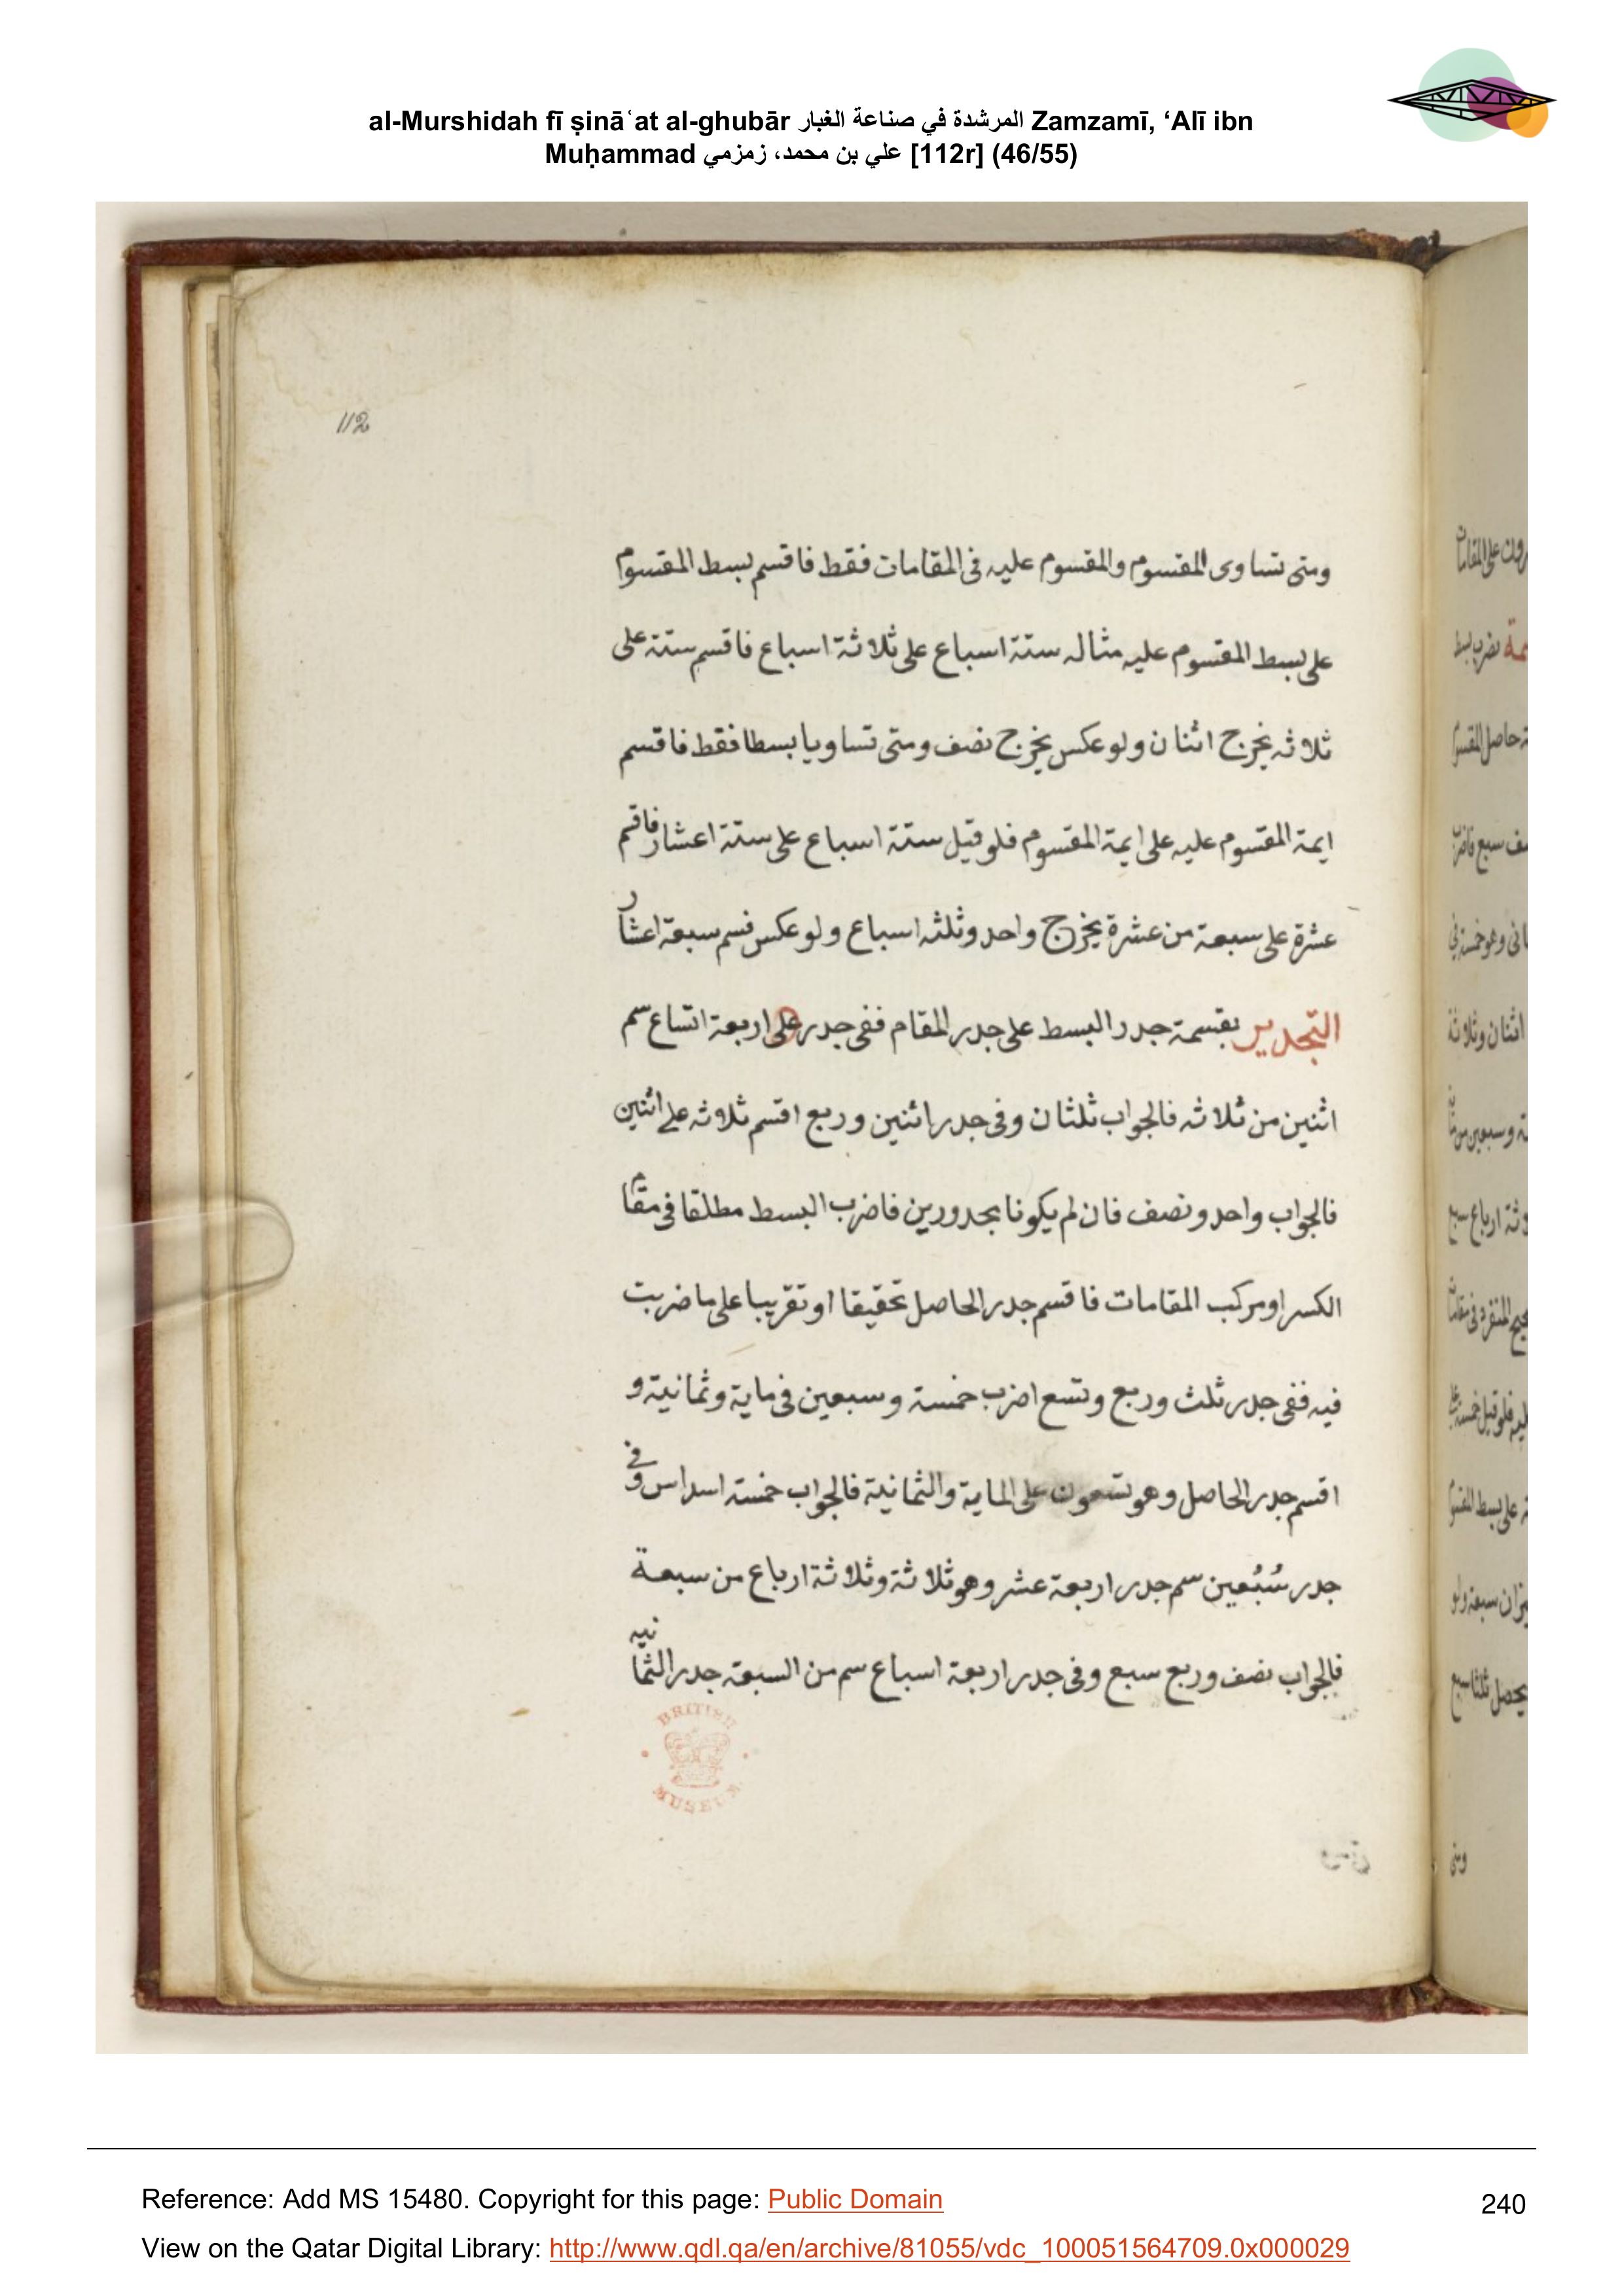 al-Murshidah fī ṣināʿat al-ghubār المرشدة في صناعة الغبار Zamzamī, ‘Alī ibn
Muḥammad علي بن محمد، زمزمي [112r] (46/55)
112
ومتى تساوى المقسوم والمقسوم عليه فى المقامات فقط فاقسم بسط المقسوم
على بسط المقسوم عليه مثاله ستة اسباع على ثلاثة اسباع فاقسم ستة على
ثلاثه يخرج اثنان ولو عكس يخرج نصف ومتى تساويا بسطا فقط فاقسم
ايمة المقسوم عليه على ايمة المقسوم فلو قيل ستة اسباع على ستة اعشار فاقسم
عشرة على سبعة من عشرة يخرج واحد وثلثه اسباع ولو عكس فسم سبعة اعشار
التجدير بقسمة جدر البسط على جدر المقام ففى جدر على اربعة اتساع سم
اثنين من ثلاثه فالجواب ثلثان وفى جدر اثنين وربع اقسم ثلاثه على اثنين
فالجواب واحد ونصف فان لم يكونا بجدورين فاضرب البسط مطلقا فى مقام
الكسر او مركب المقامات فاقسم جدر الحاصل تحقيقا او تقريبا على ما ضربت
فيه ففى جدر ثلث وربع وتسع اضرب خمسة وسبعين فى ماية وثمانية و
اقسم جدر الحاصل وهو تسعون على الماية والثمانية فالجواب خمسة اسداس وفى
جدر سُبُعين سم جدر اربعة عشر وهو ثلاثة وثلاثة ارباع من سبعة
فالجواب نصف وربع سبع وفى جدر اربعة اسباع سم من السبعة جدر الثمانيه
BRITISH MUSEUM
Reference: Add MS 15480. Copyright for this page: Public Domain
240
View on the Qatar Digital Library: http://www.qdl.qa/en/archive/81055/vdc_100051564709.0x000029